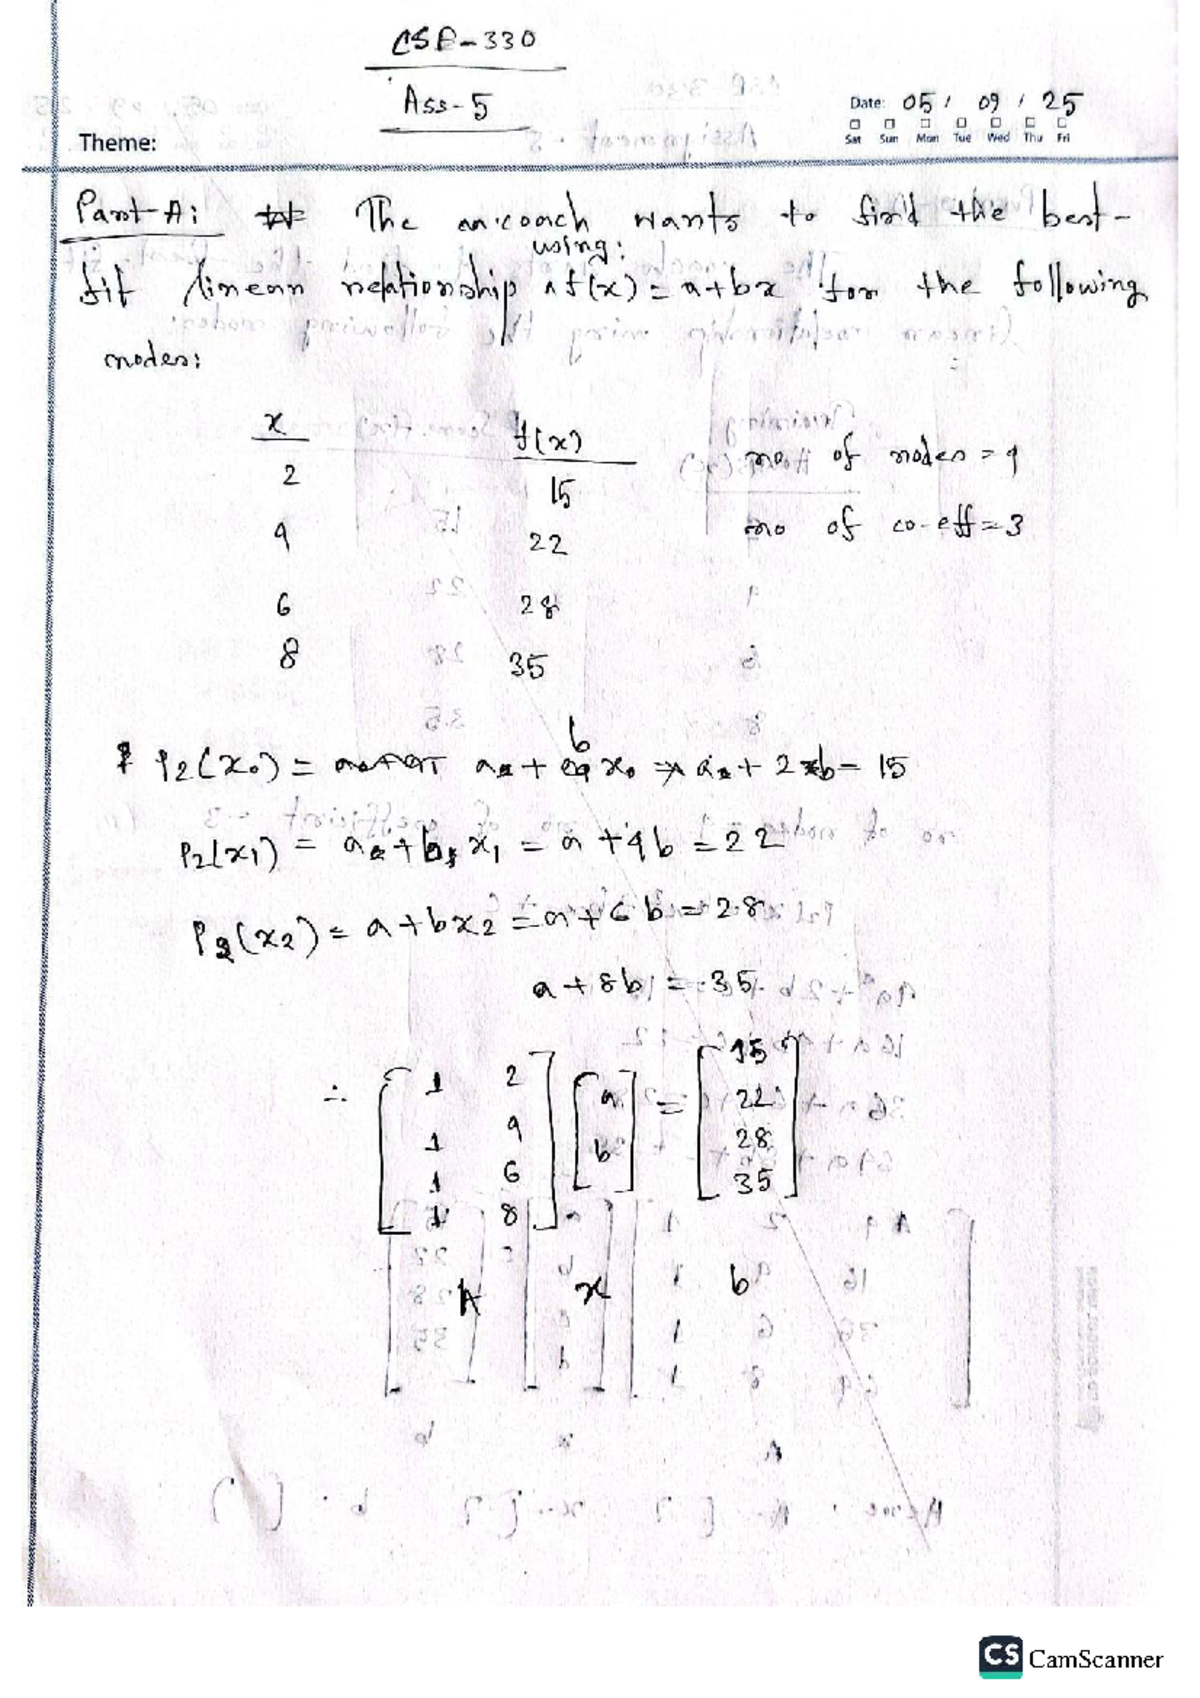 CSE-330
Ass-5
Date: 05 / 09 / 25
Sat Sun Mon Tue Wed Thu Fri
Theme:
Part-A: The coach wants to find the best-
fit linear relationship using: f(x) = a+bx for the following
nodes:
x f(x)
2 15 no of nodes = 4
4 22 no of co-eff = 3
6 28
8 35
P2(x0) = a + b x0 ⇒ a + 2b = 15
P2(x1) = a + b x1 = a + 4b = 22
P2(x2) = a + bx2 = a + 6b = 28
a + 8b = 35
∴ [1 2] [a] = [15]
1 4 b 22
1 6 28
1 8 35
A x b
CS CamScanner